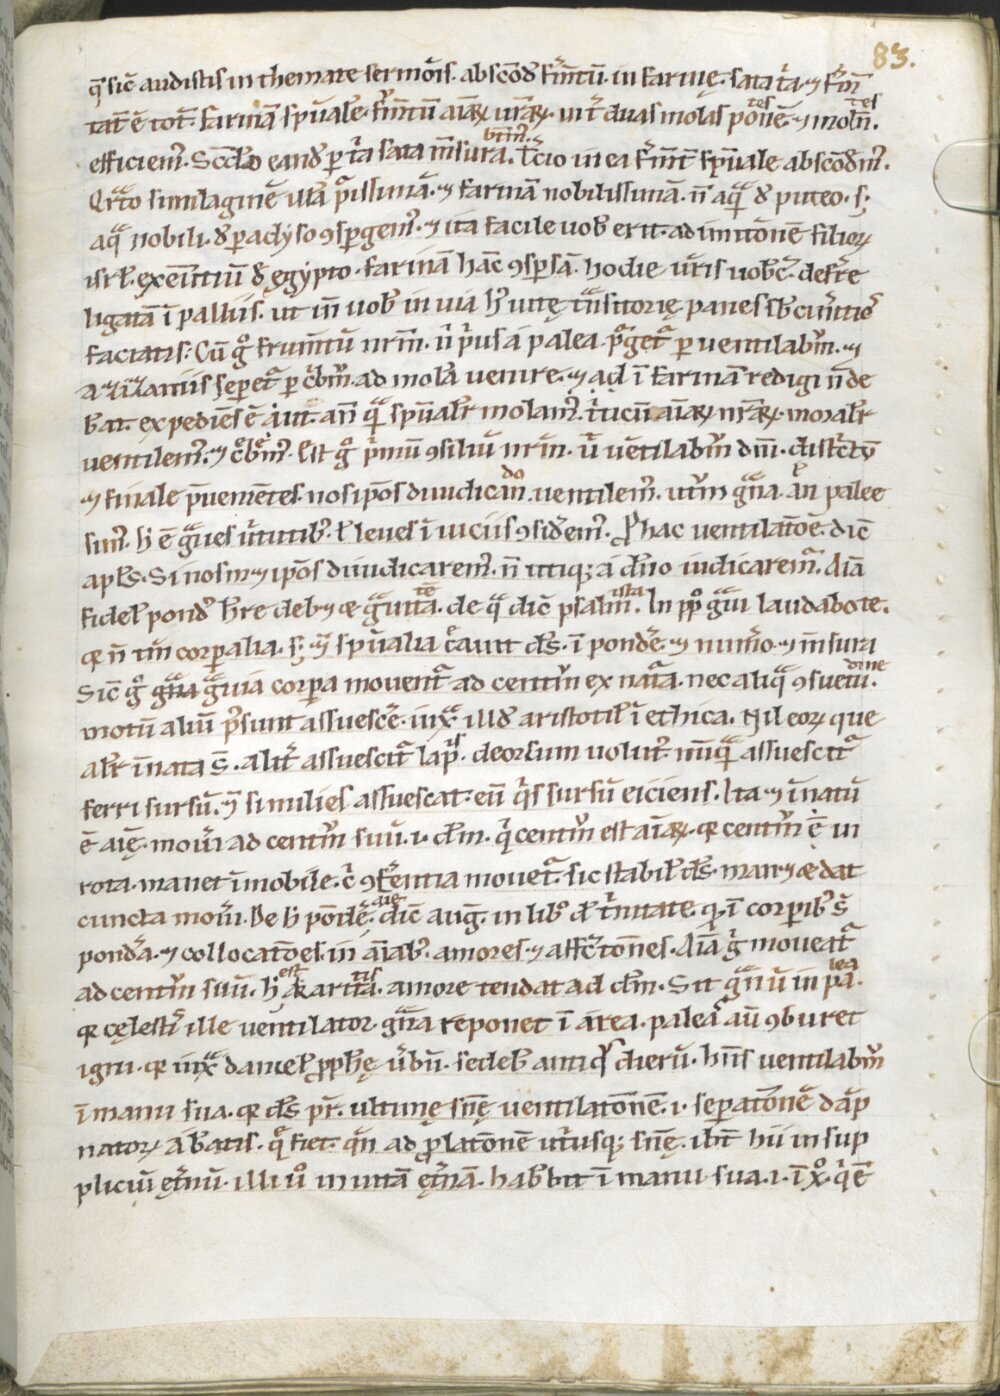 83.
q̄ sic̄ audistis in themate sermōis. abscōd̄ f̄m̄tū. in farinę. sata t̄a. ⁊ f̄m̄
tat̄ ē tot̄. farinā sp̄uale. f̄m̄tū aīaꝝ ur̄aꝝ. int̄ duas molas ponētes. ⁊ moln̄tes.
efficiem̄. Scd̄o eand̄ ꝑ t̄a sata m̄surabim̄. t̄cio in ea f̄m̄t̄ sp̄uale abscōdem̄.
Qr̄to similaginē illā p̄issimā. ⁊ farinā nobilissimā. n̄ aq̄ d̄ puteo. s;
aq̄ nobili. d̄ paradyso ꝯsp̄gem̄. ⁊ ita facile uob̄ erit. ad imitōnē filioꝝ
isr̄l. exeūtiū d̄ egẏpto. farinā hāc ꝯsp̄sā. hodie ur̄is uob̄c̄. defr̄e
ligatā ī palliis. ut in uob̄ in uia h̄ uitę t̄nsitorię panes sb̄cin̄tiōs
faciatis: Cū g̊ frum̄tū nr̄m̄. n̄ p̄us a palea p̄get̄ ꝑ uentilabr̄m̄. ⁊
a zizaniis seꝑet̄ ꝑ c̄bm̄. ad molā uenire. ⁊ ad ī farinā redigi n̄ de
bat. expediēs ē aūt. an̄ q̄ sp̄ualr̄ molam̄. t̄ticū aīaꝝ nr̄aꝝ. moralr̄
uentilem̄. ⁊ c̄bem̄. Est g̊ p̄mū ꝯsiliū nr̄m̄. ū uētilabr̄m dn̄i. districtū
⁊ finale p̄ueniētes. nos ip̄os diiudicando. uentilem̄. utr̄m gn̄a. an palee
sim̄. h̄ ē ḡues ūtutib̄. l̄ leues ī uiciis ꝯsid̄em̄. P hac uentilatōe. dic̄
apl̄s. Si nosm⁊ ip̄os diiudicarem̄. n̄ utiqꝫ a dn̄o iudicarem̄. Aīa
fidel̄ pond̄ h̄re deb⁊ ⁊ ḡuitatē. de q̄ dic̄ psalm̄ista. In pp̄lo ḡui laudabo te.
q̄ n̄ tm̄ corꝑalia. s; ⁊ sp̄ualia c̄auit ds̄. ī pondr̄e. ⁊ num̄o. ⁊ m̄sura
Sic̄ g̊ ḡuia corꝑa mouent̄ ad centr̄m ex nat̄a. nec aliq̄ ꝯsuetudine.
motū aliū p̄sunt assuesc̄e. iux̄ illd̄ aristotil̄ ī ethica. Nil eoꝝ que
alr̄ ī nata s̄. alit̄ assuescit̄. lap̄is. deorsum uoluit̄. nūq̄ assuescit̄
ferri sursū. n̄ si milies assuescat. eū q̄s sursū eiciens. Ita ⁊ ī natū
ē aīę. moū̄i ad centr̄m suū. i. dm̄. q̄ centr̄m est aīaꝝ. q̄ centr̄m ē in
rota. manet īmobile. c̄ cf̄entia mouet̄. sic stabil̄ ds̄. man⁊ ⁊ dat
cuncta moū̄i. De h̄ pōdē. dic̄ auḡ. in lib̄o d̄ t̄nitate. q̄. ī corꝑib̄ s̄
pond̄a. ⁊ collocatōes. in aīab̄. amores. ⁊ affc̄tōnes. Aīa g̊ moueat̄
ad centr̄m suū. h̄ est karitatis. amore tendat ad dm̄. Sit gn̄ū in palea.
q̄ celest̄ ille uentilator. gn̄a reponet ī area. paleā aū ꝯburet
igni. q̄ iux̄ daniel̄ ꝓph̄ę ūbū. sedeb̄ antiqꝰ dierū. hn̄s uentilabr̄m
ī manu sua. q̄ ds̄ pr̄. ultimę sn̄ę uentilatōnē. i. seꝑatōnē dāp
natoꝝ a b̄atis. q̊ fiet. q̄n ad ꝓlatōnē ut̄usqꝫ sn̄ę. ibt̄ hii in sup
pliciū et̄nū. illi ū in uitā et̄nā. hab̄bit ī manu sua. i. ī xp̊. q̄ ē